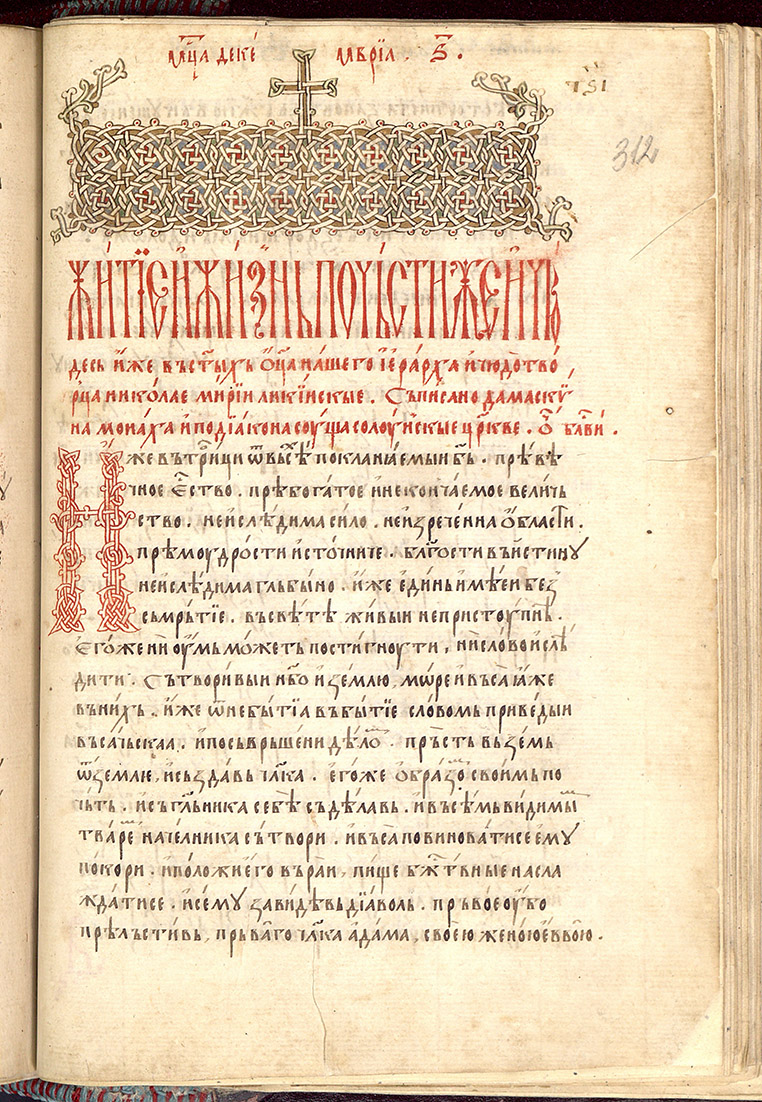 мⷭ҇ца декемврїа. ѕ҃.
312
жи́тїе и҆ жи́знь по чь́сти же и҆ чю
десь и҆же въ ст҃ыхь ѻ҆ц҃а на́шего їера́рха и҆ чюдⷪ҇тво́
рца нико́лае мирїи ликїи́нскые. Съпи́сано дамаскѵ́
на мона́ха и҆ подїа́кона со́уща солоу́нскые цр҃кве. ѻ҆ч҃е бл҃ви.
И҆́же въ трⷪ҇ици ѿ вьсе́х покланꙗ́емыи б҃ь. прѣвѣ́
чное є҆ство. прѣбога́тое и҆ неконча́емое вели́чь
ство. неи҆слѣ́дима си́ло. неи҆зрече́нна ѻ҆́бласти.
прѣмоу́дрости и҆сто́чниче. бл҃гости въи҆стинꙋ
неи҆слѣ́дима глъбы́но. и҆́же еди́нь и҆мѣ́еи без
съмрь́тїе. въ свѣ́тѣ жи́выи непристоу́пнѣ.
Его́же ни оу҆́мь мо́жеть пости́гноути, ни сло́во и҆слѣ́
дити. Сътвори́выи н҃бо и҆ зе́млю, мо́ре и҆ въса ꙗ҆́же
въ ни́хь. и҆́же ѿ небытїа въ бы́тїе сло́вомь приведы́и
въса́чьскаа. и҆ по съврьше́ни дѣ́ло. прь́сть вьзе́мь
ѿ землю, и҆ създа́вь чл҃ка. его́же ѻ҆́бразо свои́мь по
чьть. и҆ съгл҃ьника себѣ съдѣ́лавь. и҆ въсѣ́мь ви́димы
тва́ре наче́лника сътвори. и҆ въса повинова́тисе е҆мꙋ
покори. и҆ положи е҆го въ раи, пи́ще бж҃твные насла
жда́тисе. и҆ се́мꙋ зави́дѣвь дїа́воль. прь́вое оу҆́бо
прѣльсти́вь, прьва́го чл҃ка а҆да́ма, свое́ю жено́ю е҆ѵво́ю.